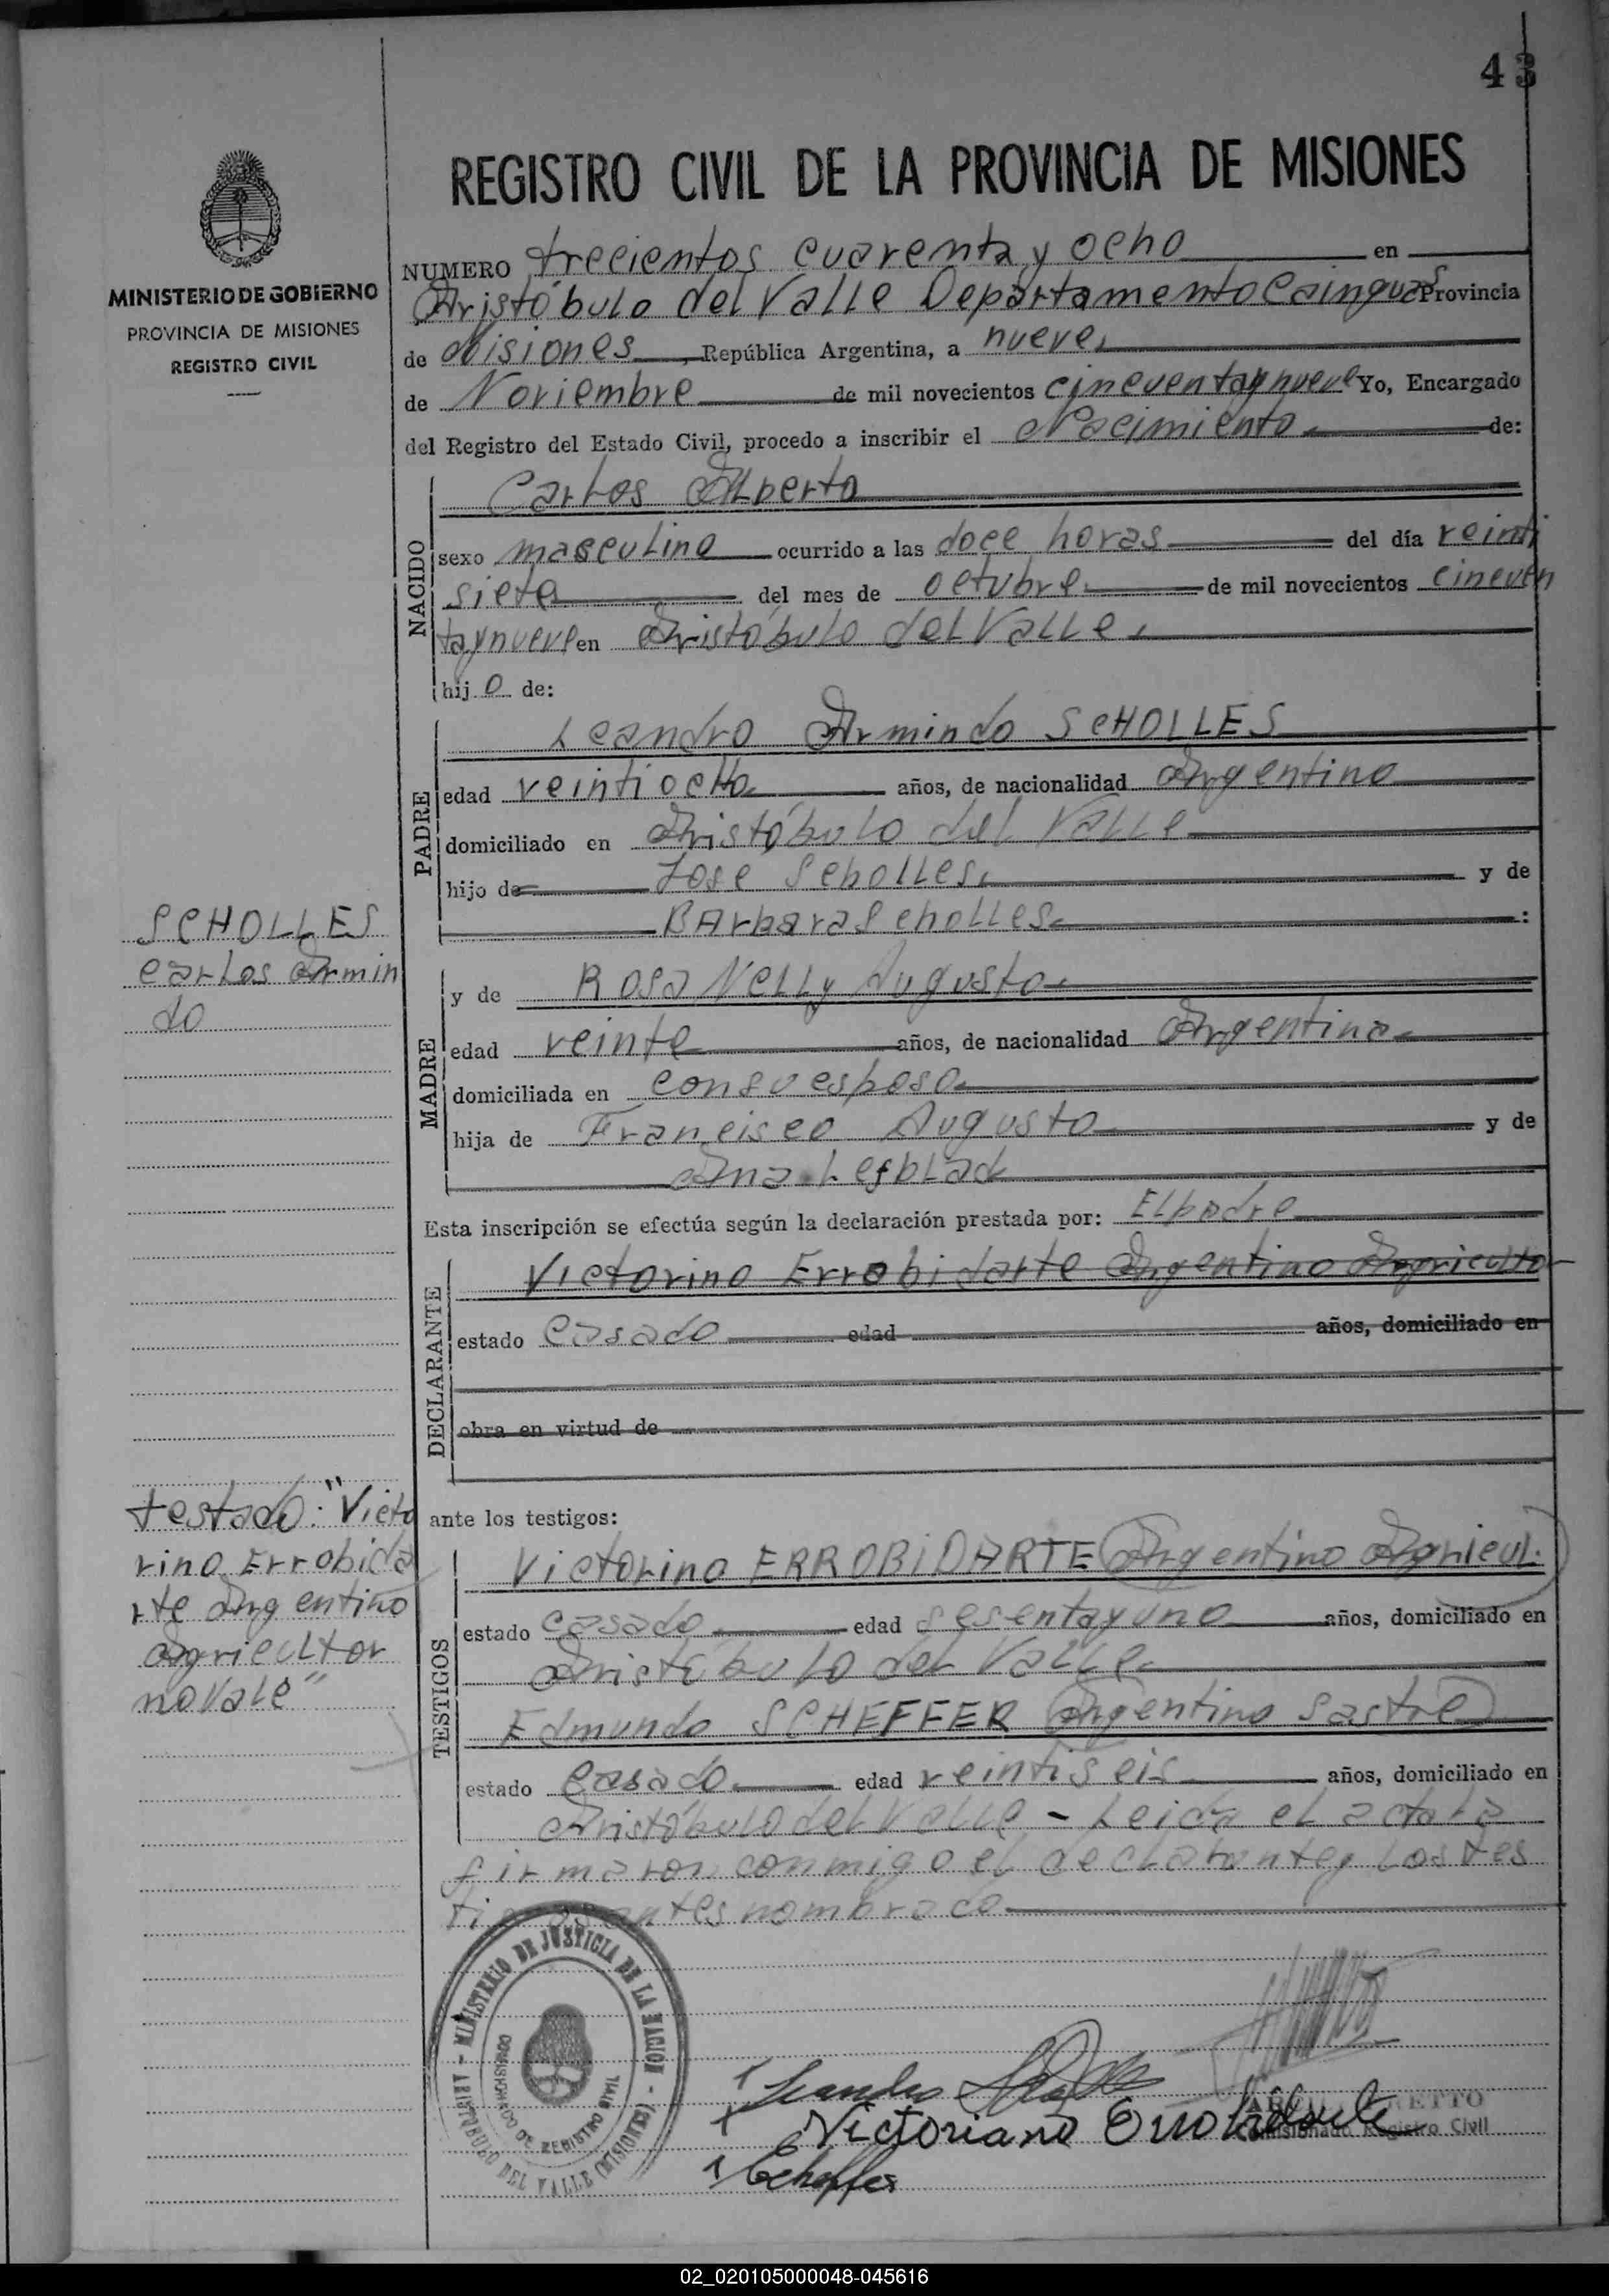 43
REGISTRO CIVIL DE LA PROVINCIA DE MISIONES
MINISTERIO DE GOBIERNO
PROVINCIA DE MISIONES
REGISTRO CIVIL
NUMERO trecientos cuarenta y ocho en
Aristóbulo del Valle Departamento Cainguas Provincia
de Misiones, República Argentina, a nueve
de Noviembre de mil novecientos cincuentaynueve Yo, Encargado
del Registro del Estado Civil, procedo a inscribir el Nacimiento de:
NACIDO
Carlos Alberto
sexo masculino ocurrido a las doce horas del día veinti
siete del mes de octubre de mil novecientos cincuen
taynueve en Aristóbulo del Valle.
hijo de:
PADRE
Leandro Armindo SCHOLLES
edad veintiocho años, de nacionalidad Argentino
domiciliado en Aristóbulo del Valle
hijo de Jose Scholles. y de
Barbara Scholles :
SCHOLLES
Carlos Armin
do
MADRE
y de Rosa Nelly Augusto
edad veinte años, de nacionalidad Argentina
domiciliada en con su esposo
hija de Francisco Augusto y de
Ana
Esta inscripción se efectúa según la declaración prestada por: El padre
DECLARANTE
Victorino Errobidarte Argentino Agriculto
estado Casado edad años, domiciliado en
obra en virtud de
testado: "Victo
rino Errobida
rte Argentino
Agricultor
no vale"
ante los testigos:
TESTIGOS
Victorino ERROBIDARTE Argentino Agricul.
estado casado edad sesentayuno años, domiciliado en
Aristóbulo del Valle
Edmundo SCHEFFER Argentino Sastre
estado casado edad veintiseis años, domiciliado en
Aristóbulo del Valle - Leida el acta la
firmaron conmigo el declarante y los tes
tigos antes nombrado
MINISTERIO DE JUSTICIA DE LA NACION - ARISTOBULO DEL VALLE (MISIONES) -
COMISIONADO DE REGISTRO CIVIL
Leandro Scholles
Victoriano Errobidarte
ETTO
Comisionado Registro Civil
Scheffer
02_020105000048-045616